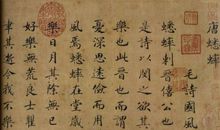 唐蟋蟀
毛詩國風
蟋蟀刺晉僖公也
是詩以閔之欲其
樂也此晉也而謂
憂深思遠儉而用
風焉蟋蟀在堂
樂日月其除無已
好樂無荒良士瞿
聿其逝今我不樂